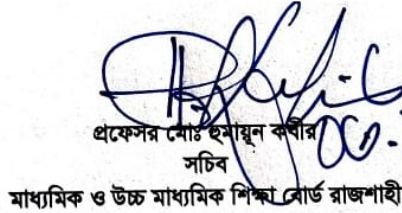 প্রফেসর মোঃ হুমায়ুন কবীর
সচিব
মাধ্যমিক ও উচ্চ মাধ্যমিক শিক্ষা বোর্ড রাজশাহী